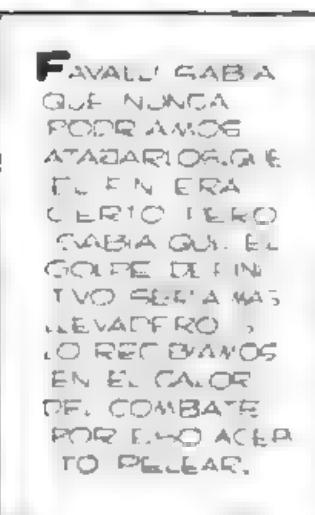 FAVALLI SABIA
QUE NUNCA
PODRIAMOS
ATACARLOS, QUE
EL FIN ERA
CIERTO PERO
SABIA QUE EL
GOLPE DEFINI
TIVO SERIA MAS
LLEVADERO SI
LO RECIBIAMOS
EN EL CALOR
DEL COMBATE
POR ESO ACEP
TO PELEAR.